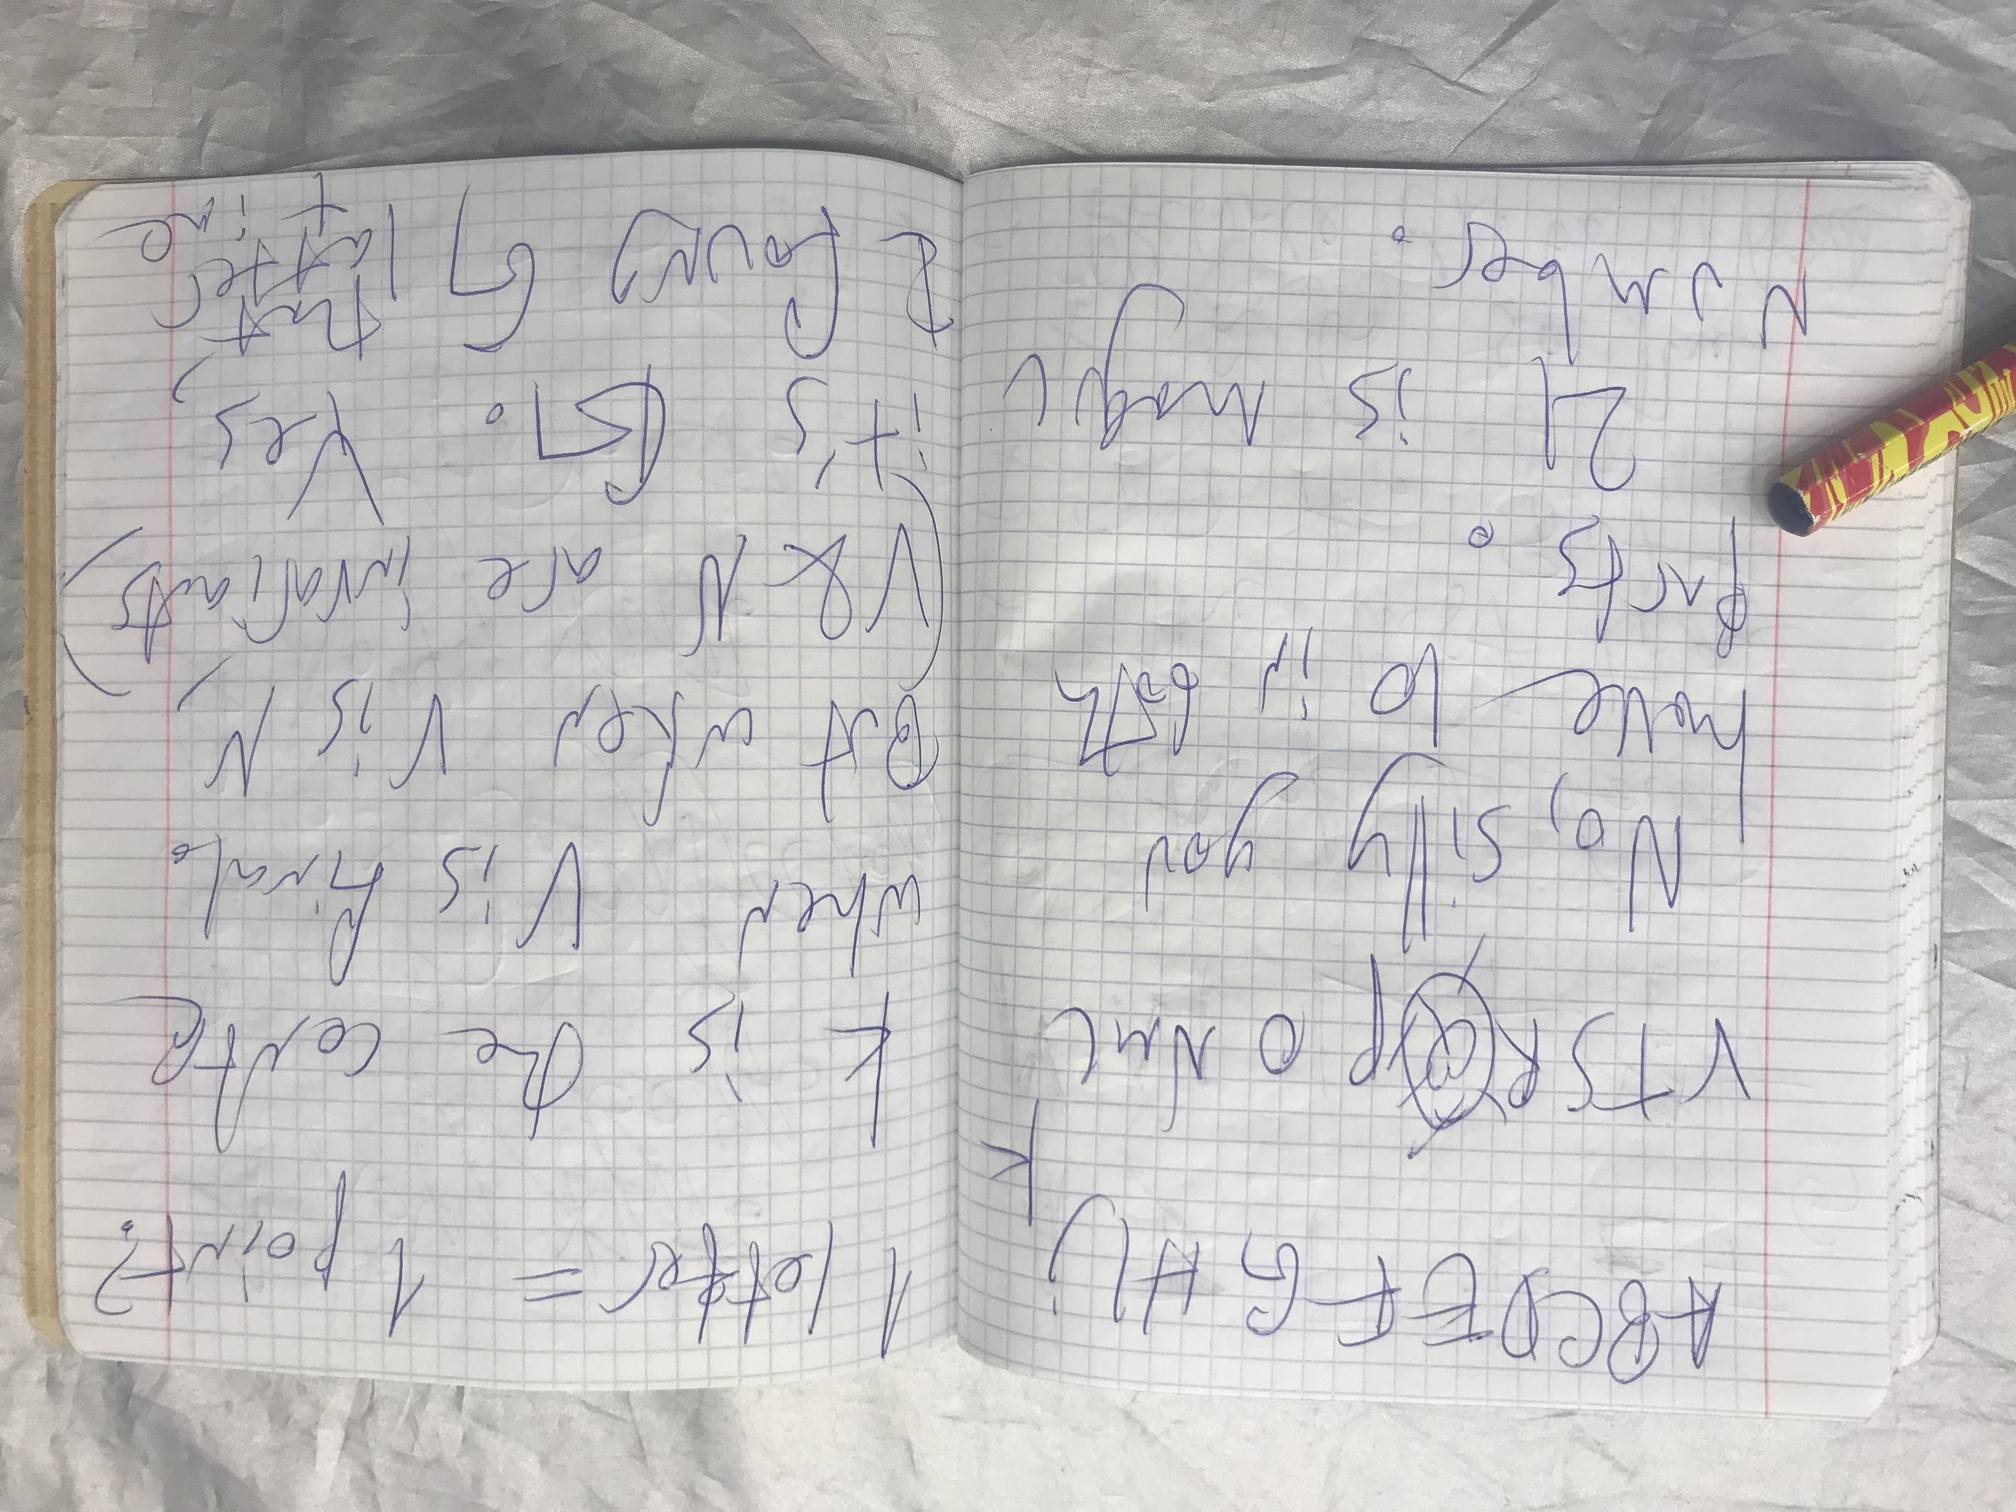 ABCDEFGHIJ
K
VTSRQPONML
No, silly you
have 10 in both
parts.
21 is magic
Number.
1 letter = 1 point?
K is the center
when V is final.
But when V is N,
(V & N are invariants)
it's G. Yes,
I found G that
latter
time